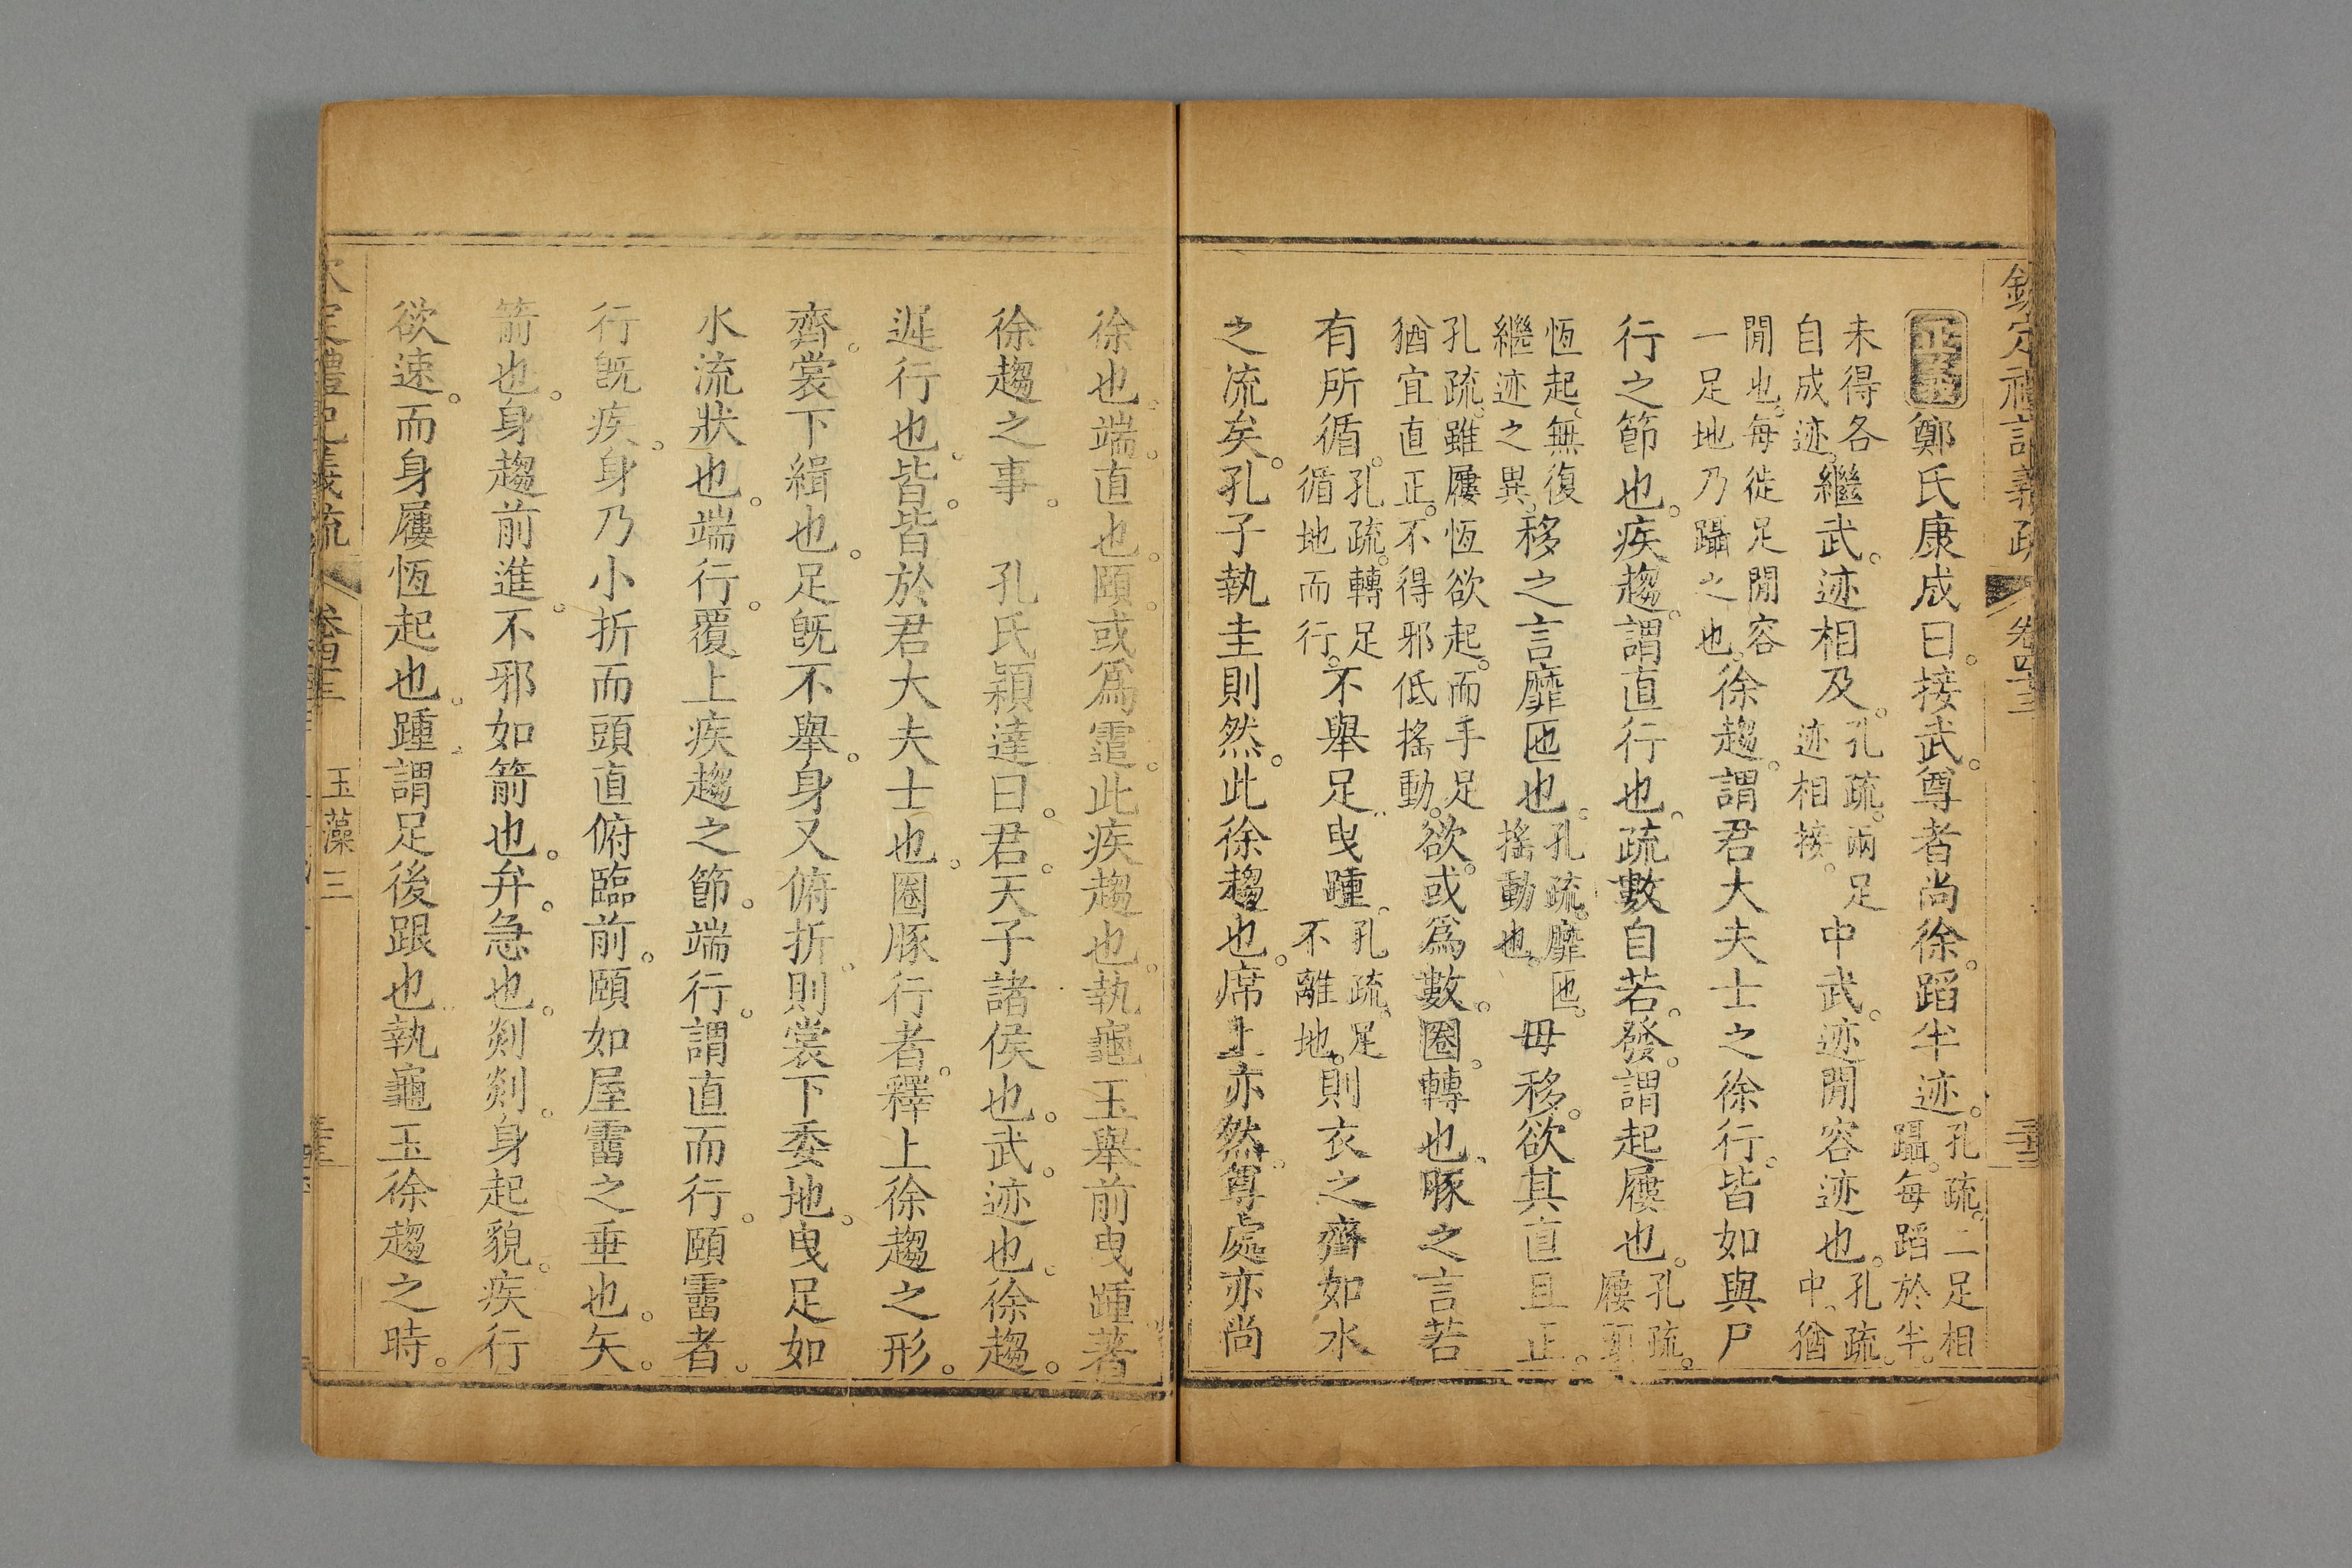 欽定禮記義疏 卷四十三
正義鄭氏康成曰。接武。尊者尚徐。蹈半迹。孔疏。二足相躡。每蹈於半。
未得各自成迹。繼武。迹相及。孔疏。兩足迹相接。中武。迹閒容迹也。孔疏。中、猶
閒也。每徙足閒容一足地乃躡之也。徐趨。謂君大夫士之徐行。皆如與尸
行之節也。疾趨。謂直行也。疏數自若。發。謂起屨也。孔疏。屨頭
恆起。無復繼迹之異。移之言靡匜也。孔疏。靡匜。搖動也。毋移。欲其直且正。
孔疏。雖屨恆欲起。而手足猶宜直正。不得邪低搖動。欲。或爲數。圈。轉也。豚之言若
有所循。孔疏。轉足循地而行。不舉足。曳踵。孔疏。足不離地。則衣之齊如水
之流矣。孔子執圭則然。此徐趨也。席上亦然。尊處亦尚
徐也。端。直也。頤。或爲霆。此疾趨也。執龜玉舉前曳踵。著
徐趨之事。 孔氏穎達曰。君。天子諸侯也。武。迹也。徐趨。
遲行也。皆。皆於君大夫士也。圈豚行者。釋上徐趨之形。
齊。裳下緝也。足旣不舉。身又俯折。則裳下委地。曳足如
水流狀也。端行。覆上疾趨之節。端行。謂直而行。頤霤者。
行旣疾。身乃小折而頭直俯臨前。頤如屋霤之垂也。矢。
箭也。身趨前進。不邪如箭也。弁。急也。剡剡。身起貌。疾行
欲速。而身屨恆起也。踵。謂足後跟也。執龜玉徐趨之時。
定禮記義疏 卷四十三 玉藻三